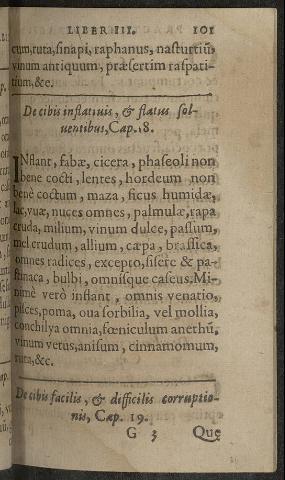 LIBER III. 101
cum, ruta, sinapi, raphanus, nasturtiū,
vinum antiquum, præsertim raspati-
tium, &c.
De cibis inflatiuis, & flatus sol-
uentibus, Cap. 18.
INflant, fabæ, cicera, phaseoli non
bene cocti, lentes, hordeum non
benè coctum, maza, ficus humidæ,
lac, vuæ, nuces omnes, palmulæ, rapa
cruda, milium, vinum dulce, passum,
mel crudum, allium, cæpa, brassica,
omnes radices, excepto, sisere & pa-
stinaca, bulbi, omnisque caseus. Mi-
nimè verò inflant, omnis venatio,
pisces, poma, oua sorbilia, vel mollia,
conchilya omnia, fœniculum anethū,
vinum vetus, anisum, cinnamomum,
ruta, &c.
De cibis facilis, & difficilis corruptio-
nis, Cap. 19.
G 3 Quę